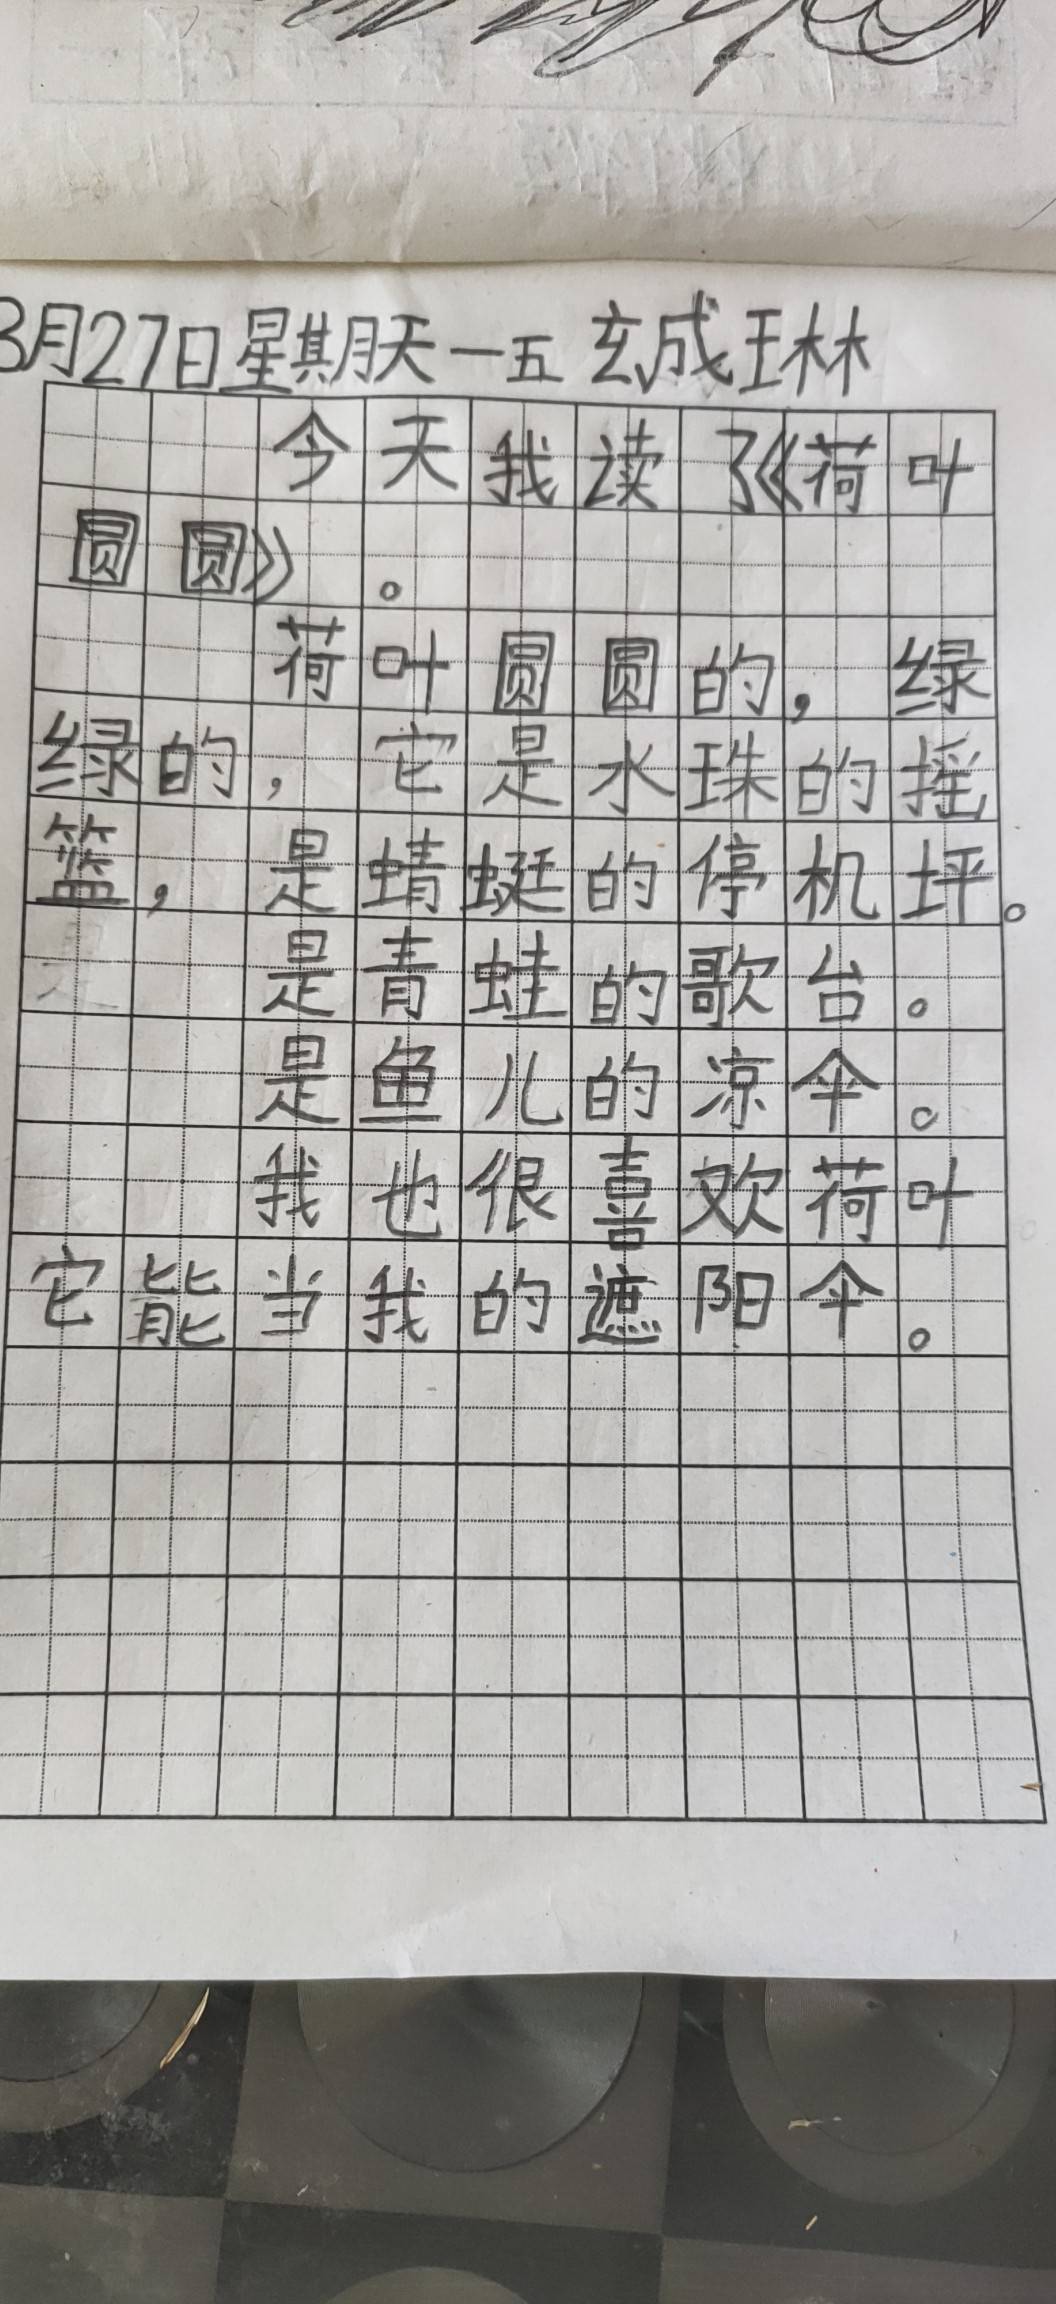 3月27日星期天一五玄成琳
今天我读了《荷叶
圆圆》。
荷叶圆圆的，绿
绿的，它是水珠的摇
篮，是蜻蜓的停机坪。
是青蛙的歌台。
是鱼儿的凉伞。
我也很喜欢荷叶
它能当我的遮阳伞。